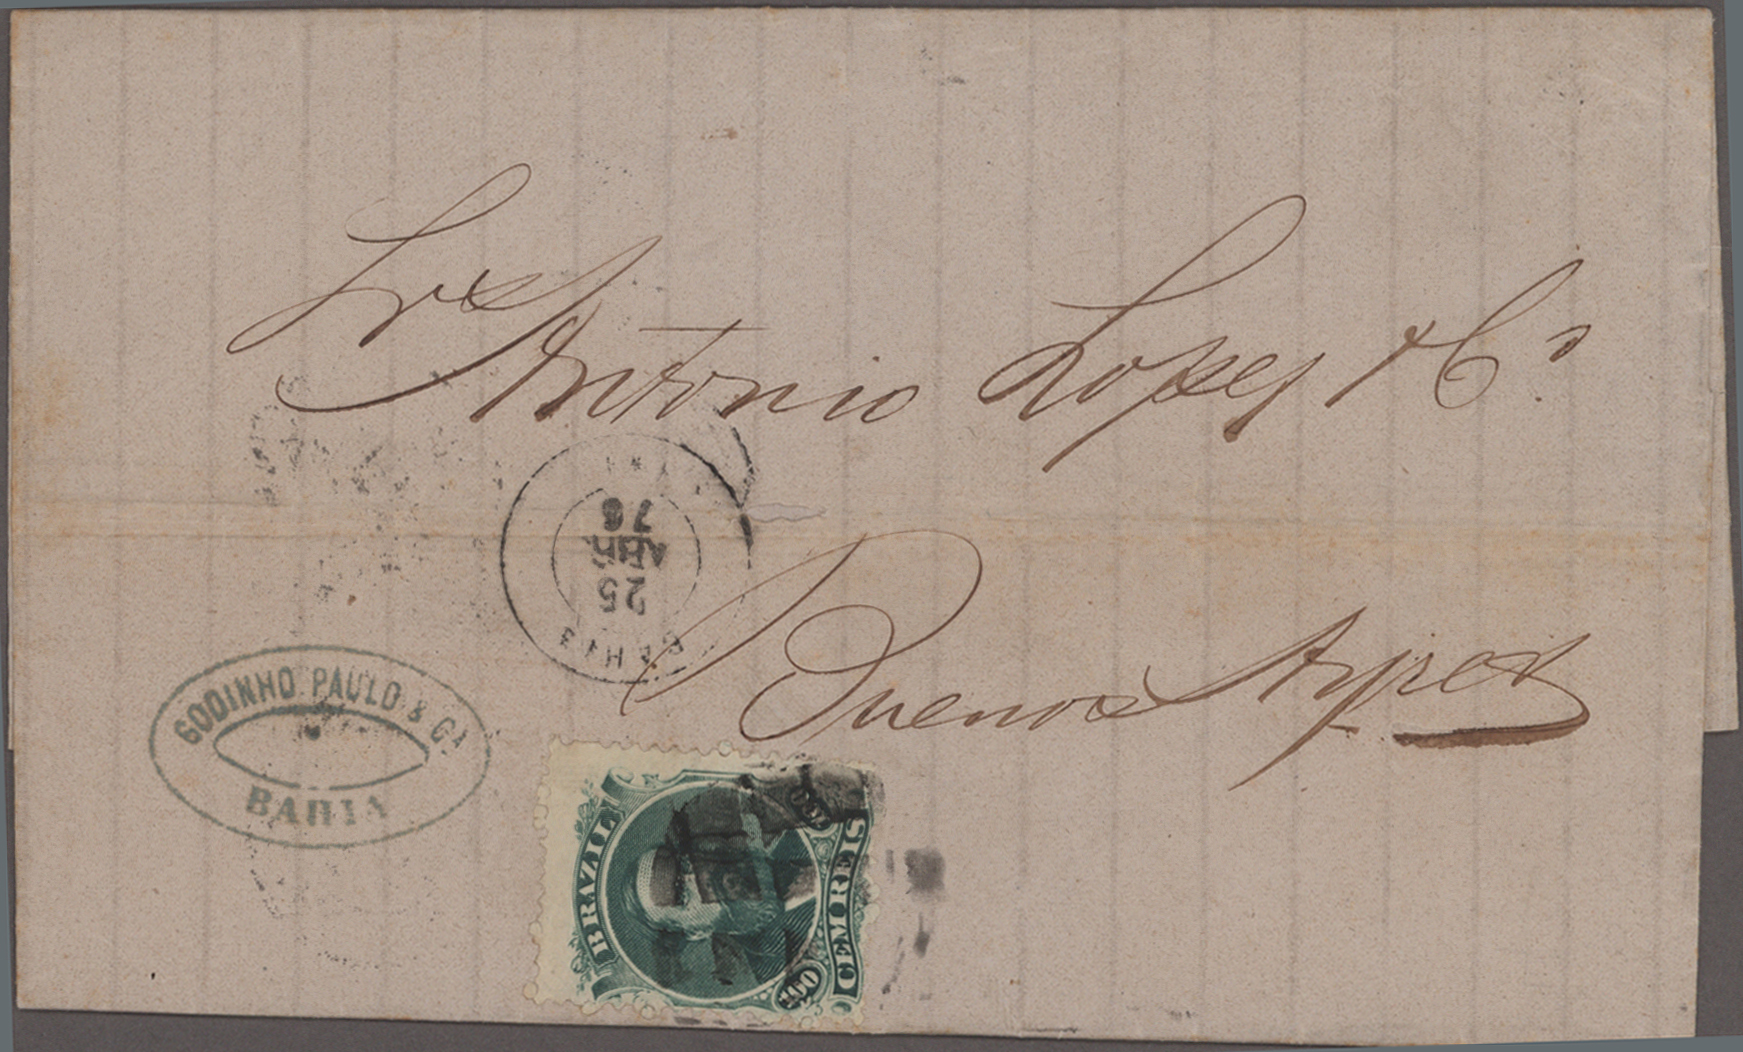 Sres Antonio Lopes & Ca
BAHIA
25
ABR
76
Buenos Ayres
GODINHO PAULO & CA
BAHIA
BRAZIL
100
CEM REIS
100